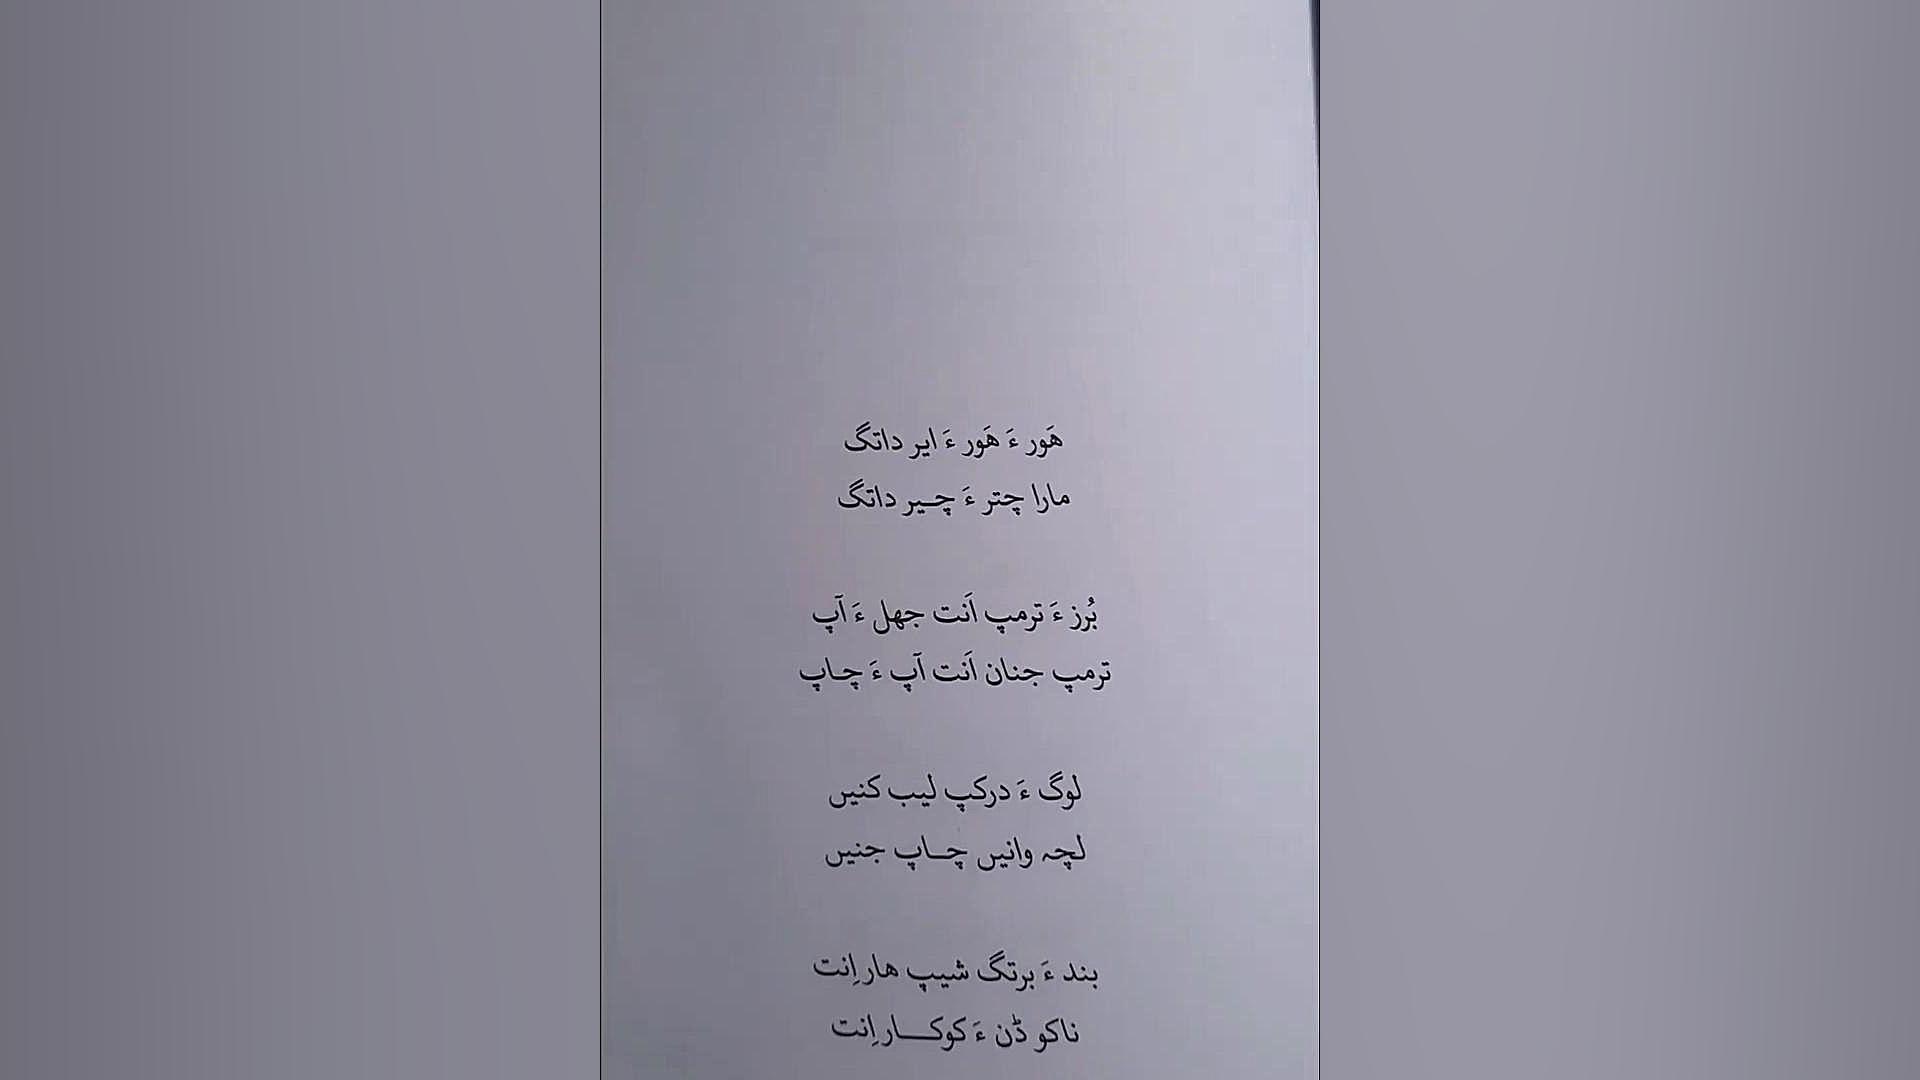 هَور ءَ هَور ءَ ایر داتگ
مارا چتر ءَ چیر داتگ
بُرز ءَ ترمپ اَنت جھل ءَ آپ
ترمپ جنان اَنت آپ ءَ چاپ
لوگ ءَ درکپ لیب کنیں
لچہ وانیں چاپ جنیں
بند ءَ برتگ شیپ ھار اِنت
ناکو ڈن ءَ کوکار اِنت